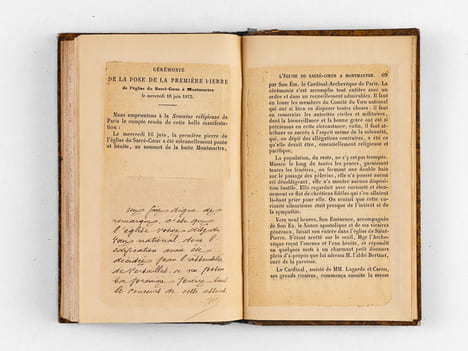 CÉRÉMONIE
DE LA POSE DE LA PREMIÈRE PIERRE
de l'église du Sacré-Cœur à Montmartre
le mercredi 16 juin 1875.
Nous empruntons à la Semaine religieuse de
Paris le compte rendu de cette belle manifesta-
tion :
Le mercredi 16 juin, la première pierre de
l'église du Sacré-Cœur a été solennellement posée
et bénite, au sommet de la butte Montmartre,
Un fait digne de
remarque, c'est que
l'église votive
national dont
édification avait été
décidée par l'assemblée
de Versailles, a vu poser
la première pierre sans
le concours de cette
L'ÉGLISE DU SACRÉ-CŒUR A MONTMARTRE.
par Son Ém. le Cardinal-Archevêque de Paris. La
cérémonie s'est accomplie tout entière avec un
ordre et dans un recueillement admirables. Il faut
en louer les membres du Comité du Vœu national
qui ont si bien su disposer toutes choses ; il faut
en remercier les autorités civiles et militaires,
dont la bienveillance et la bonne grâce ont été si
précieuses en cette circonstance; enfin, il faut at-
tribuer ce succès à l'esprit même de la solennité,
qui, en dépit des allégations contraires, a été ce
qu'elle devait être, essentiellement religieuse et
pacifique.
La population, du reste, ne s'y est pas trompée.
Massée le long de toutes les pentes, garnissant
toutes les fenêtres, ou formant une double haie
sur le passage des pèlerins, elle n'a poussé aucun
cri désobligeant, elle n'a montré aucune disposi-
tion hostile. Elle regardait avec curiosité et étonne-
ment ce flot de chrétiens fidèles qui s'en allaient
là-haut prier pour elle. On sentait que cette cu-
riosité silencieuse était presque de l'intérêt et de
la sympathie.
Vers neuf heures, Son Éminence, accompagnée
de Son Ex. le Nonce apostolique et de ses vicaires
généraux, faisait son entrée dans l'église de Saint-
Pierre. S'étant arrêté sur le seuil, Mgr l'Arche-
vêque reçut l'encens et l'eau bénite, et répondit
en quelques mots à un charmant petit discours
plein d'à-propos que lui adressa M. l'abbé
curé de la paroisse.
Le Cardinal, assisté de MM. Lagarde et Caron,
ses grands vicaires, commença ensuite la messe